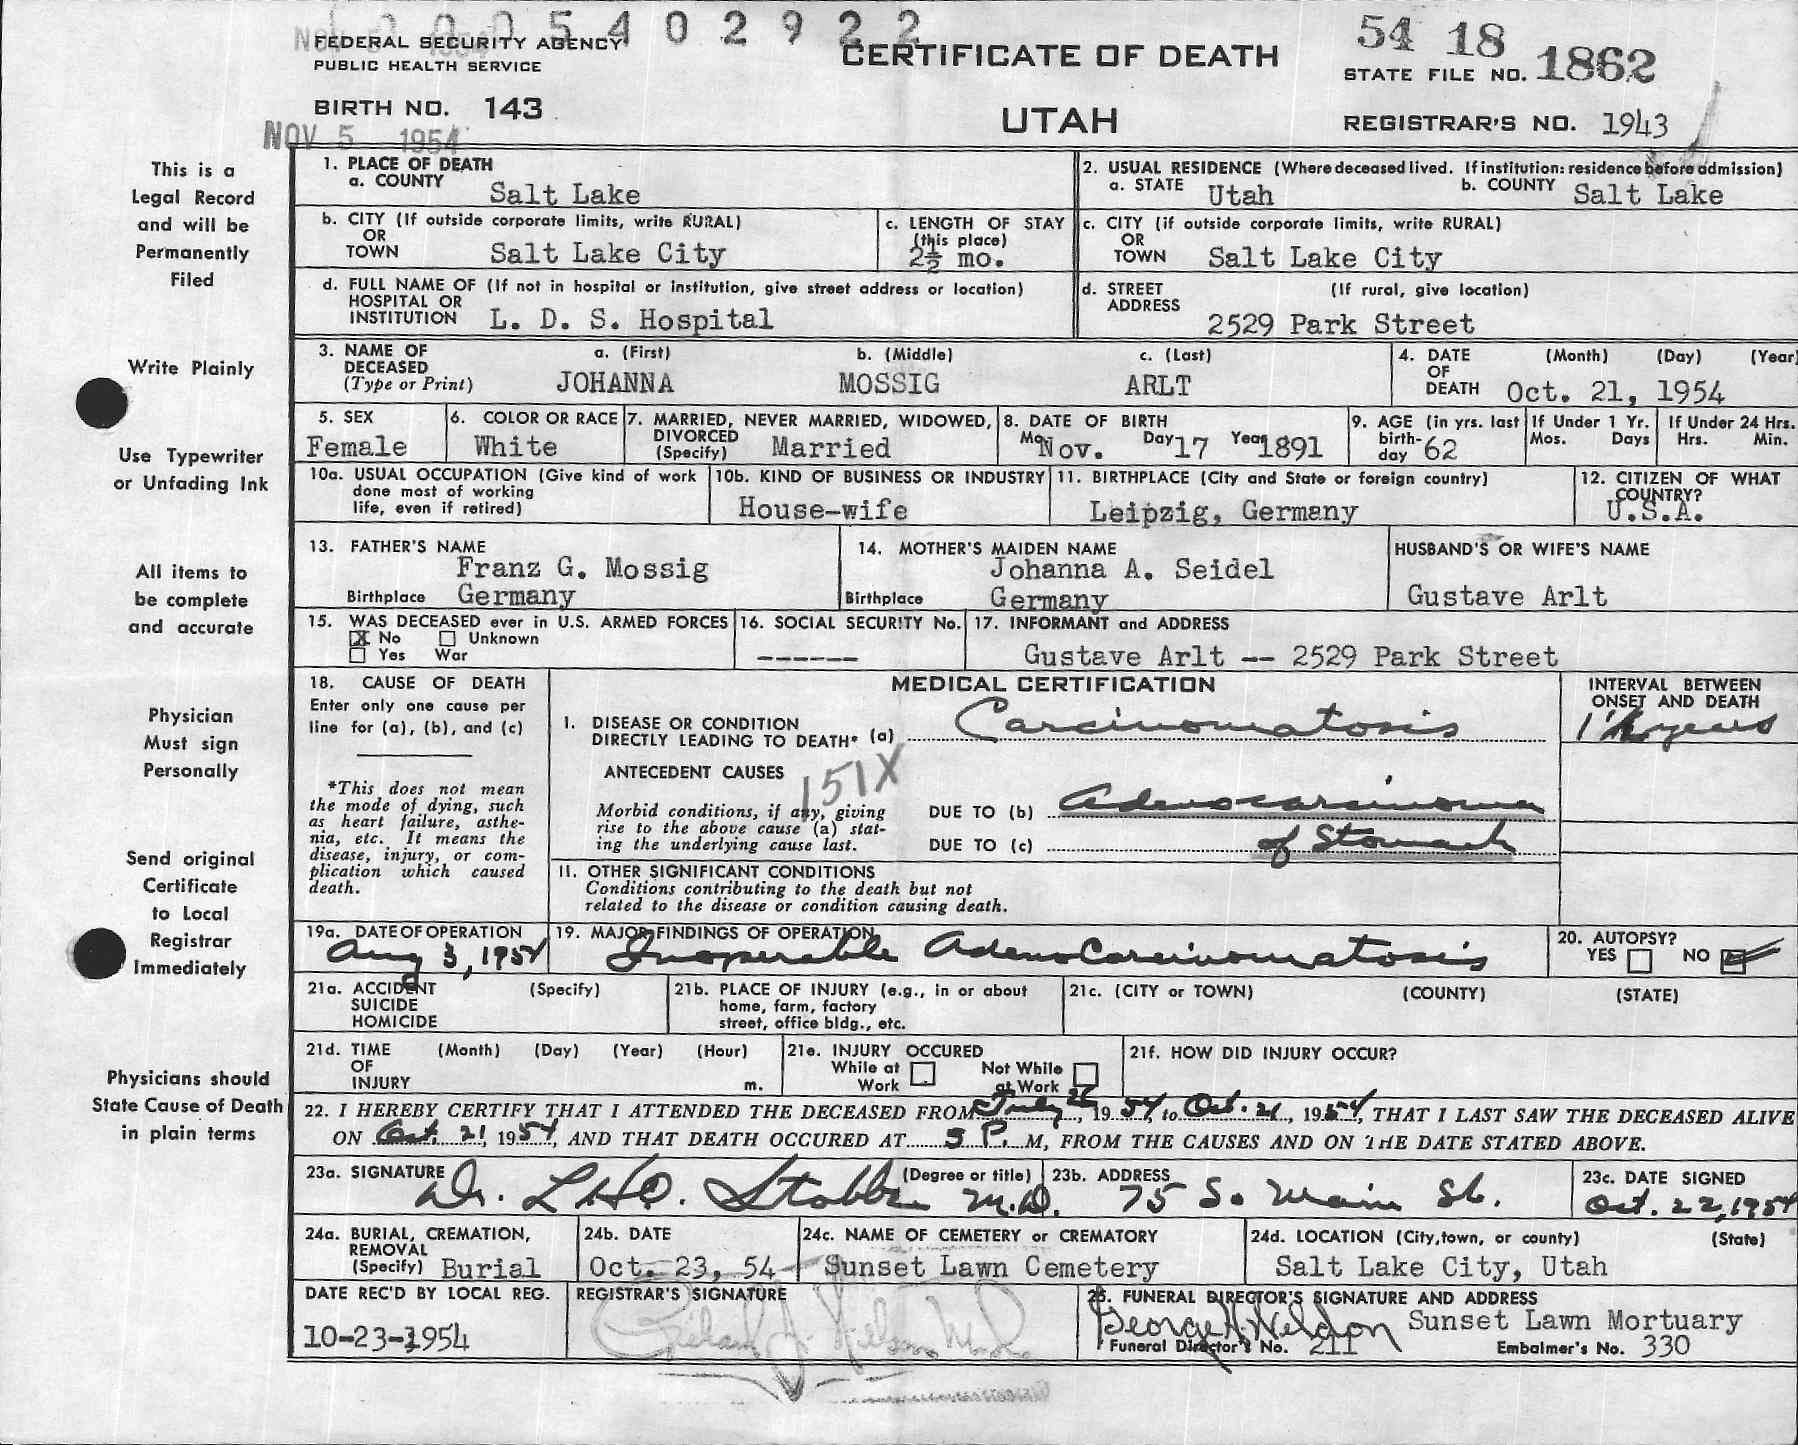 1 0 0 5 4 0 2 9 2 2
FEDERAL SECURITY AGENCY
PUBLIC HEALTH SERVICE
BIRTH NO. 143
NOV 5 1954
CERTIFICATE OF DEATH
UTAH
54 18
STATE FILE NO. 1862
REGISTRAR'S NO. 1943
This is a
Legal Record
and will be
Permanently
Filed
Write Plainly
Use Typewriter
or Unfading Ink
All items to
be complete
and accurate
Physician
Must sign
Personally
Send original
Certificate
to Local
Registrar
Immediately
Physicians should
State Cause of Death
in plain terms
1. PLACE OF DEATH
a. COUNTY Salt Lake
2. USUAL RESIDENCE (Where deceased lived. If institution: residence before admission)
a. STATE Utah b. COUNTY Salt Lake
b. CITY (If outside corporate limits, write RURAL)
OR
TOWN Salt Lake City
c. LENGTH OF STAY
(this place)
2½ mo.
c. CITY (if outside corporate limits, write RURAL)
OR
TOWN Salt Lake City
d. FULL NAME OF (If not in hospital or institution, give street address or location)
HOSPITAL OR
INSTITUTION L. D. S. Hospital
d. STREET (If rural, give location)
ADDRESS
2529 Park Street
3. NAME OF
DECEASED
(Type or Print)
a. (First) b. (Middle) c. (Last)
JOHANNA MOSSIG ARLT
4. DATE (Month) (Day) (Year)
OF
DEATH Oct. 21, 1954
5. SEX
Female
6. COLOR OR RACE
White
7. MARRIED, NEVER MARRIED, WIDOWED,
DIVORCED
(Specify) Married
8. DATE OF BIRTH
Mo. Nov. Day 17 Year 1891
9. AGE (in yrs. last
birth-
day 62
If Under 1 Yr.
Mos. Days
If Under 24 Hrs.
Hrs. Min.
10a. USUAL OCCUPATION (Give kind of work
done most of working
life, even if retired)
10b. KIND OF BUSINESS OR INDUSTRY
House-wife
11. BIRTHPLACE (City and State or foreign country)
Leipzig, Germany
12. CITIZEN OF WHAT
COUNTRY?
U.S.A.
13. FATHER'S NAME
Franz G. Mossig
Birthplace Germany
14. MOTHER'S MAIDEN NAME
Johanna A. Seidel
Birthplace Germany
HUSBAND'S OR WIFE'S NAME
Gustave Arlt
15. WAS DECEASED ever in U.S. ARMED FORCES
X No Unknown
Yes War
16. SOCIAL SECURITY No.
------
17. INFORMANT and ADDRESS
Gustave Arlt -- 2529 Park Street
18. CAUSE OF DEATH
Enter only one cause per
line for (a), (b), and (c)
*This does not mean
the mode of dying, such
as heart failure, asthe-
nia, etc. It means the
disease, injury, or com-
plication which caused
death.
MEDICAL CERTIFICATION
INTERVAL BETWEEN
ONSET AND DEATH
I. DISEASE OR CONDITION
DIRECTLY LEADING TO DEATH* (a) Carcinomatosis
years
ANTECEDENT CAUSES
151X
Morbid conditions, if any, giving
rise to the above cause (a) stat-
ing the underlying cause last.
DUE TO (b) Adenocarcinoma
DUE TO (c) of Stomach
II. OTHER SIGNIFICANT CONDITIONS
Conditions contributing to the death but not
related to the disease or condition causing death.
19a. DATE OF OPERATION
Aug 3, 1954
19. MAJOR FINDINGS OF OPERATION
Inoperable AdenoCarcinomatosis
20. AUTOPSY?
YES NO
21a. ACCIDENT (Specify)
SUICIDE
HOMICIDE
21b. PLACE OF INJURY (e.g., in or about
home, farm, factory
street, office bldg., etc.
21c. (CITY or TOWN) (COUNTY) (STATE)
21d. TIME (Month) (Day) (Year) (Hour)
OF
INJURY m.
21e. INJURY OCCURED
While at Not While
Work at Work
21f. HOW DID INJURY OCCUR?
22. I HEREBY CERTIFY THAT I ATTENDED THE DECEASED FROM July 26, 1954, to Oct. 21, 1954, THAT I LAST SAW THE DECEASED ALIVE
ON Oct. 21, 1954, AND THAT DEATH OCCURED AT 5 P. M, FROM THE CAUSES AND ON THE DATE STATED ABOVE.
23a. SIGNATURE (Degree or title)
Dr. L HO. Stobbe M.D.
23b. ADDRESS
75 So Main St.
23c. DATE SIGNED
Oct. 22, 1954
24a. BURIAL, CREMATION,
REMOVAL
(Specify) Burial
24b. DATE
Oct. 23, 54
24c. NAME OF CEMETERY or CREMATORY
Sunset Lawn Cemetery
24d. LOCATION (City, town, or county) (State)
Salt Lake City, Utah
DATE REC'D BY LOCAL REG.
10-23-1954
REGISTRAR'S SIGNATURE
25. FUNERAL DIRECTOR'S SIGNATURE AND ADDRESS
George H. Weldon Sunset Lawn Mortuary
Funeral Director's No. 211 Embalmer's No. 330